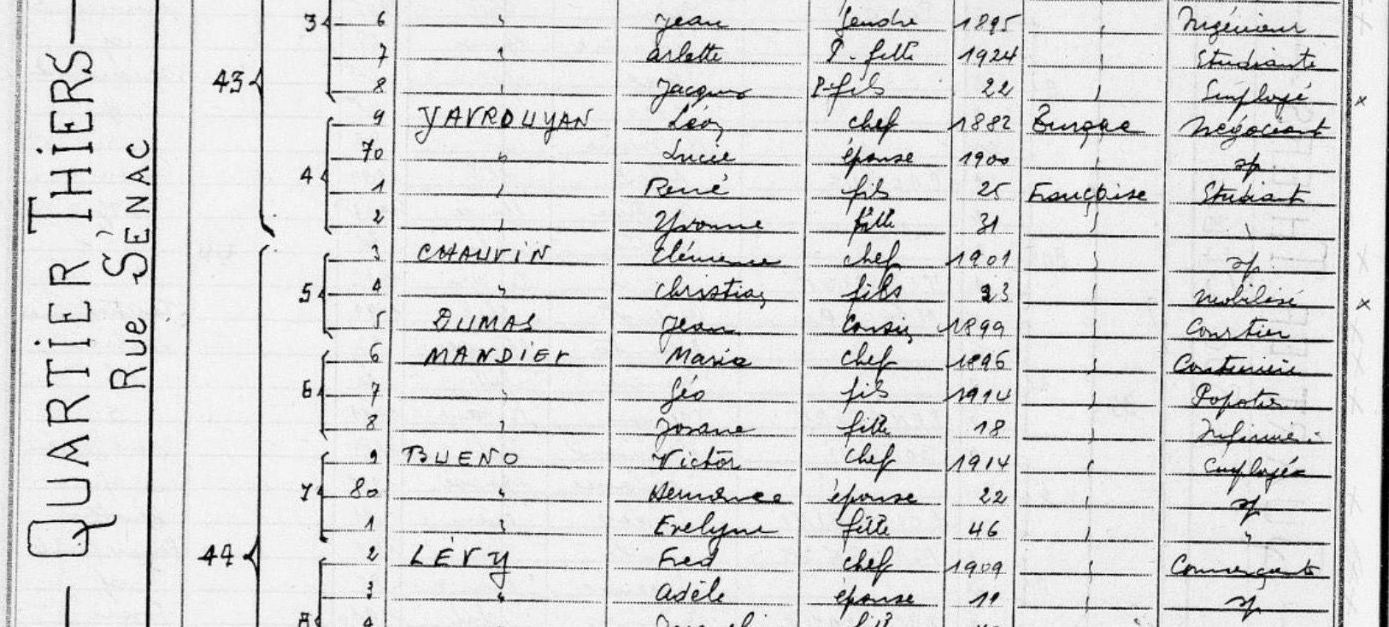 QUARTIER THIERS
Rue SÉNAC
43
44
3 6 " Jean Gendre 1895 " Ingénieur
7 " Arlette P. fille 1924 " Étudiante
8 " Jacques P. fils 22 " Employé x
4 9 YAVROUYAN Léon chef 1882 Turque Négociant
70 " Lucie épouse 1900 " sp
1 " René fils 25 Française Étudiant
2 " Yvonne fille 31 " "
5 3 CHAUVIN Clémence chef 1901 " sp
4 " Christian fils 23 " Mobilisé x
5 DUMAS Jean 1899 " Courtier
6 6 MANDIER Marie chef 1896 " Couturière
7 " Géo fils 1914 "
8 " Josane fille 18 "
7 9 BUENO Victor chef 1914 " Employé
80 " épouse 22 " sp
1 " Evelyne fille 46 " "
2 LÉVY Fred chef 1909 " Commerçant
3 " Adèle épouse 11 " sp
8